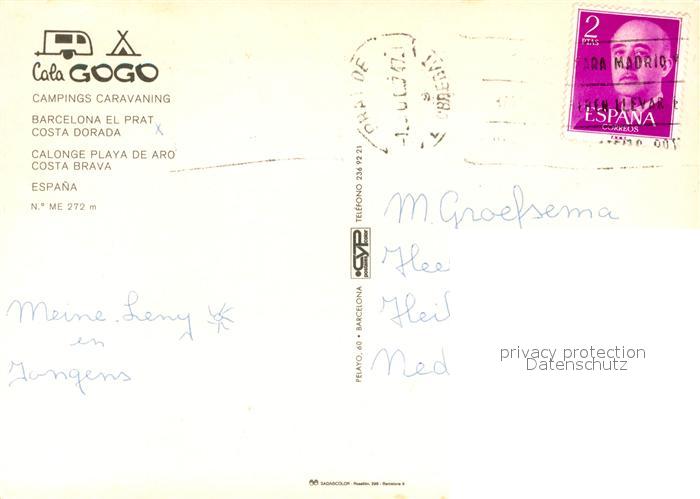 Cala GOGO
CAMPINGS CARAVANING
BARCELONA EL PRAT
COSTA DORADA X
CALONGE PLAYA DE ARO
COSTA BRAVA
ESPAÑA
N.º ME 272 m
Meine Leny
en
Jongens
PELAYO, 60 • BARCELONA
CYP
TELÉFONO 236 92 21
PRAT DE
2
PTAS
PARA MADRID
LLEVAR
ESPAÑA
CORREOS
M. Groefsema
Hee
Hei
Ned
privacy protection
Datenschutz
SADAGCOLOR - Rosellón, 298 - Barcelona